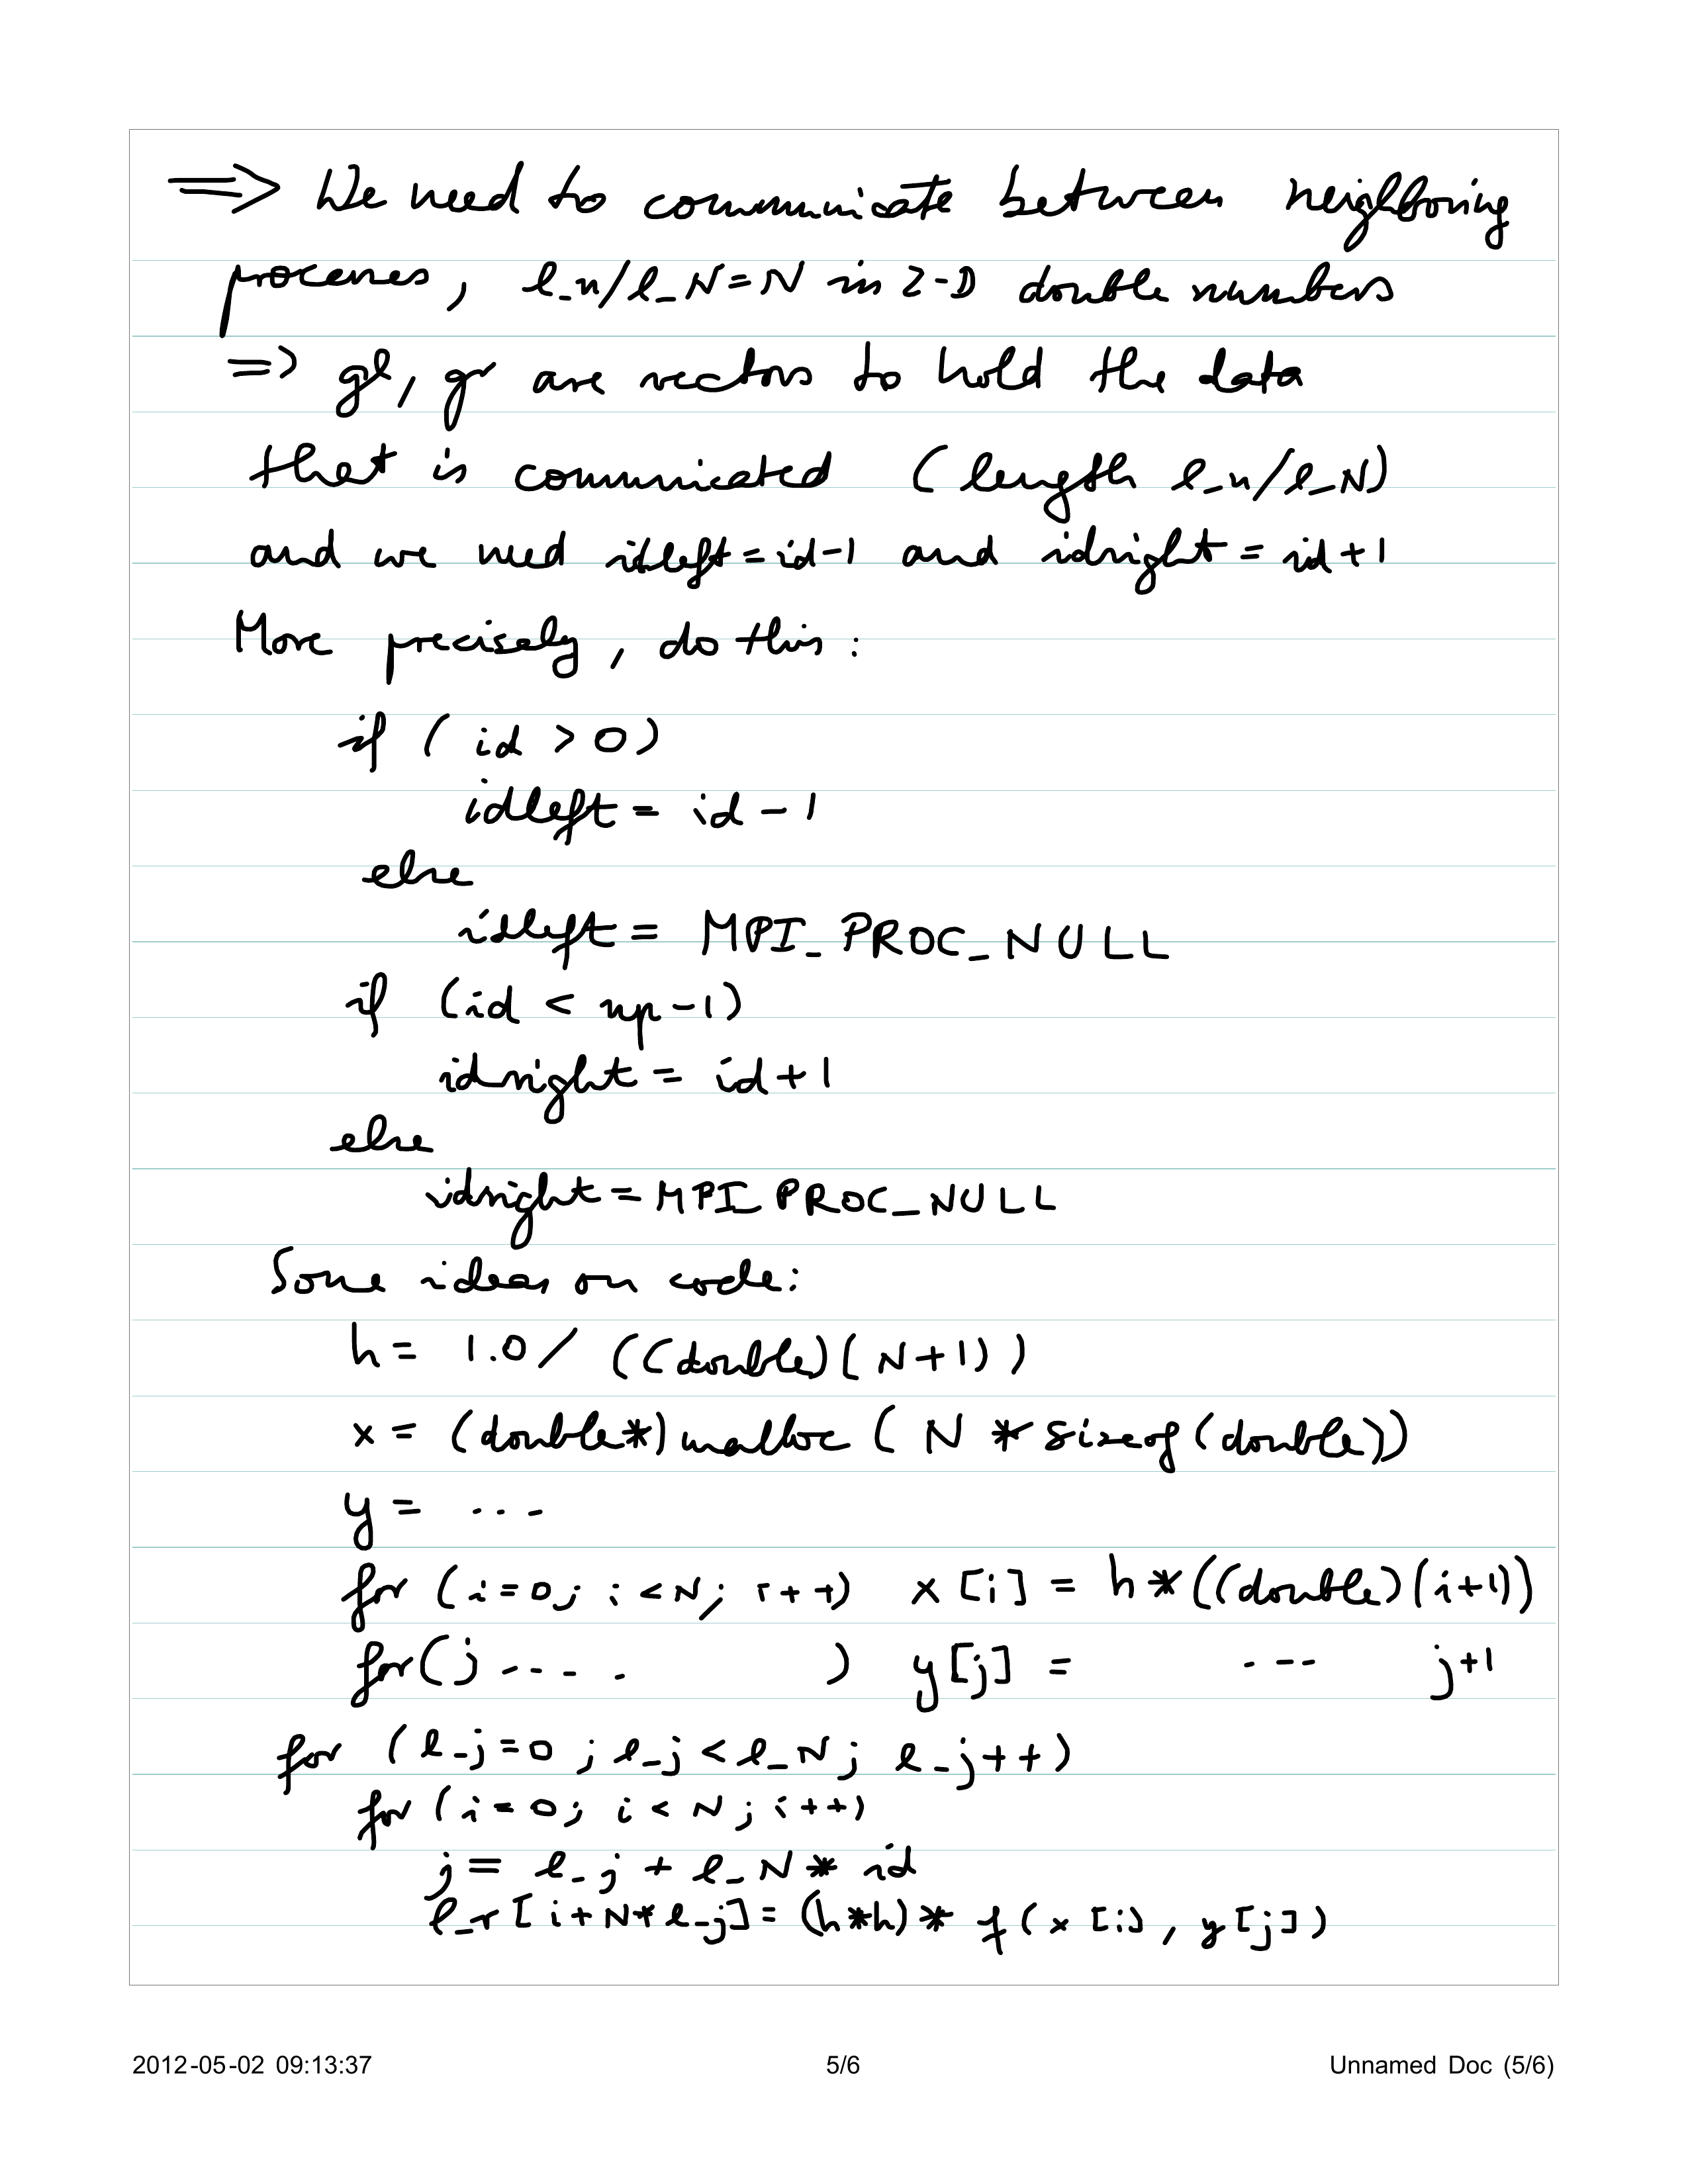 ⇒ We need to communicate between neighboring
processes, l_n/l_N=N in 2-D double numbers
⇒ gl, gr are vectors to hold the data
that is comunicated (length l_n/l_N)
and we need idleft=id-1 and idright=id+1
More precisely, do this:
if (id >0)
idleft= id-1
else
idleft= MPI_PROC_NULL
if (id < np-1)
idright= id+1
else
idright=MPI_PROC_NULL
Some ideas on code:
h= 1.0/ ((double)(N+1))
x= (double*)malloc(N*sizeof(double))
y= ...
for (i=0; i<N; i++) x[i] = h*((double)(i+1))
for(j .... ) y[j] = ... j+1
for (l_j=0; l_j<l_N; l_j++)
for (i=0; i<N; i++)
j= l_j + l_N* id
l_r[i+N*l_j]=(h*h)* f(x[i], y[j])
2012-05-02 09:13:37 5/6 Unnamed Doc (5/6)